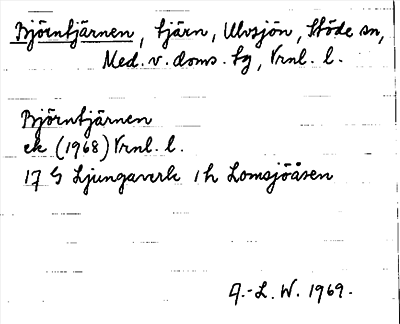 Björntjärnen, tjärn, Ulvsjön, Stöde sn,
Med. v. doms. tg, Vrnl. l.
Björntjärnen
ek (1968) Vrnl. l.
17 G Ljungaverk 1 h Lomsjöåsen
A.-L. W. 1969.